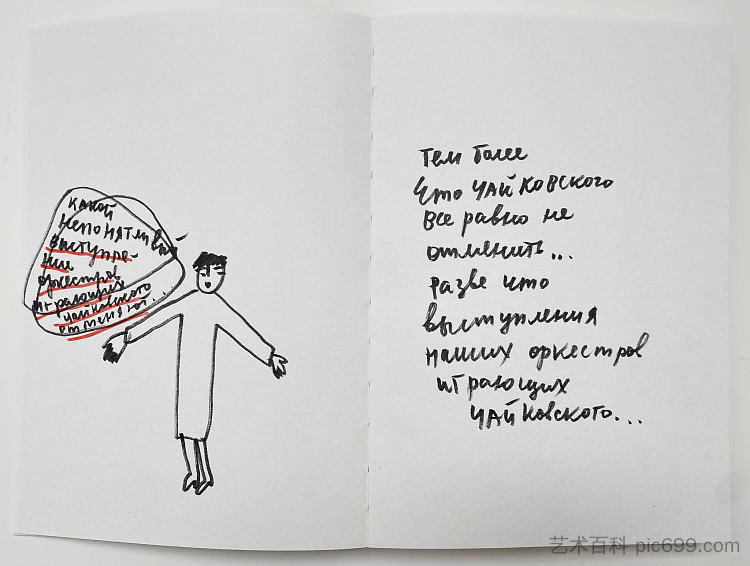 какой
непонятливый
выступле-
ние
оркестров
играющих
чайковского
отменяют...
тем более
что чайковского
все равно не
отменить...
разве что
выступления
наших оркестров
играющих
чайковского...
艺术百科 pic699.com